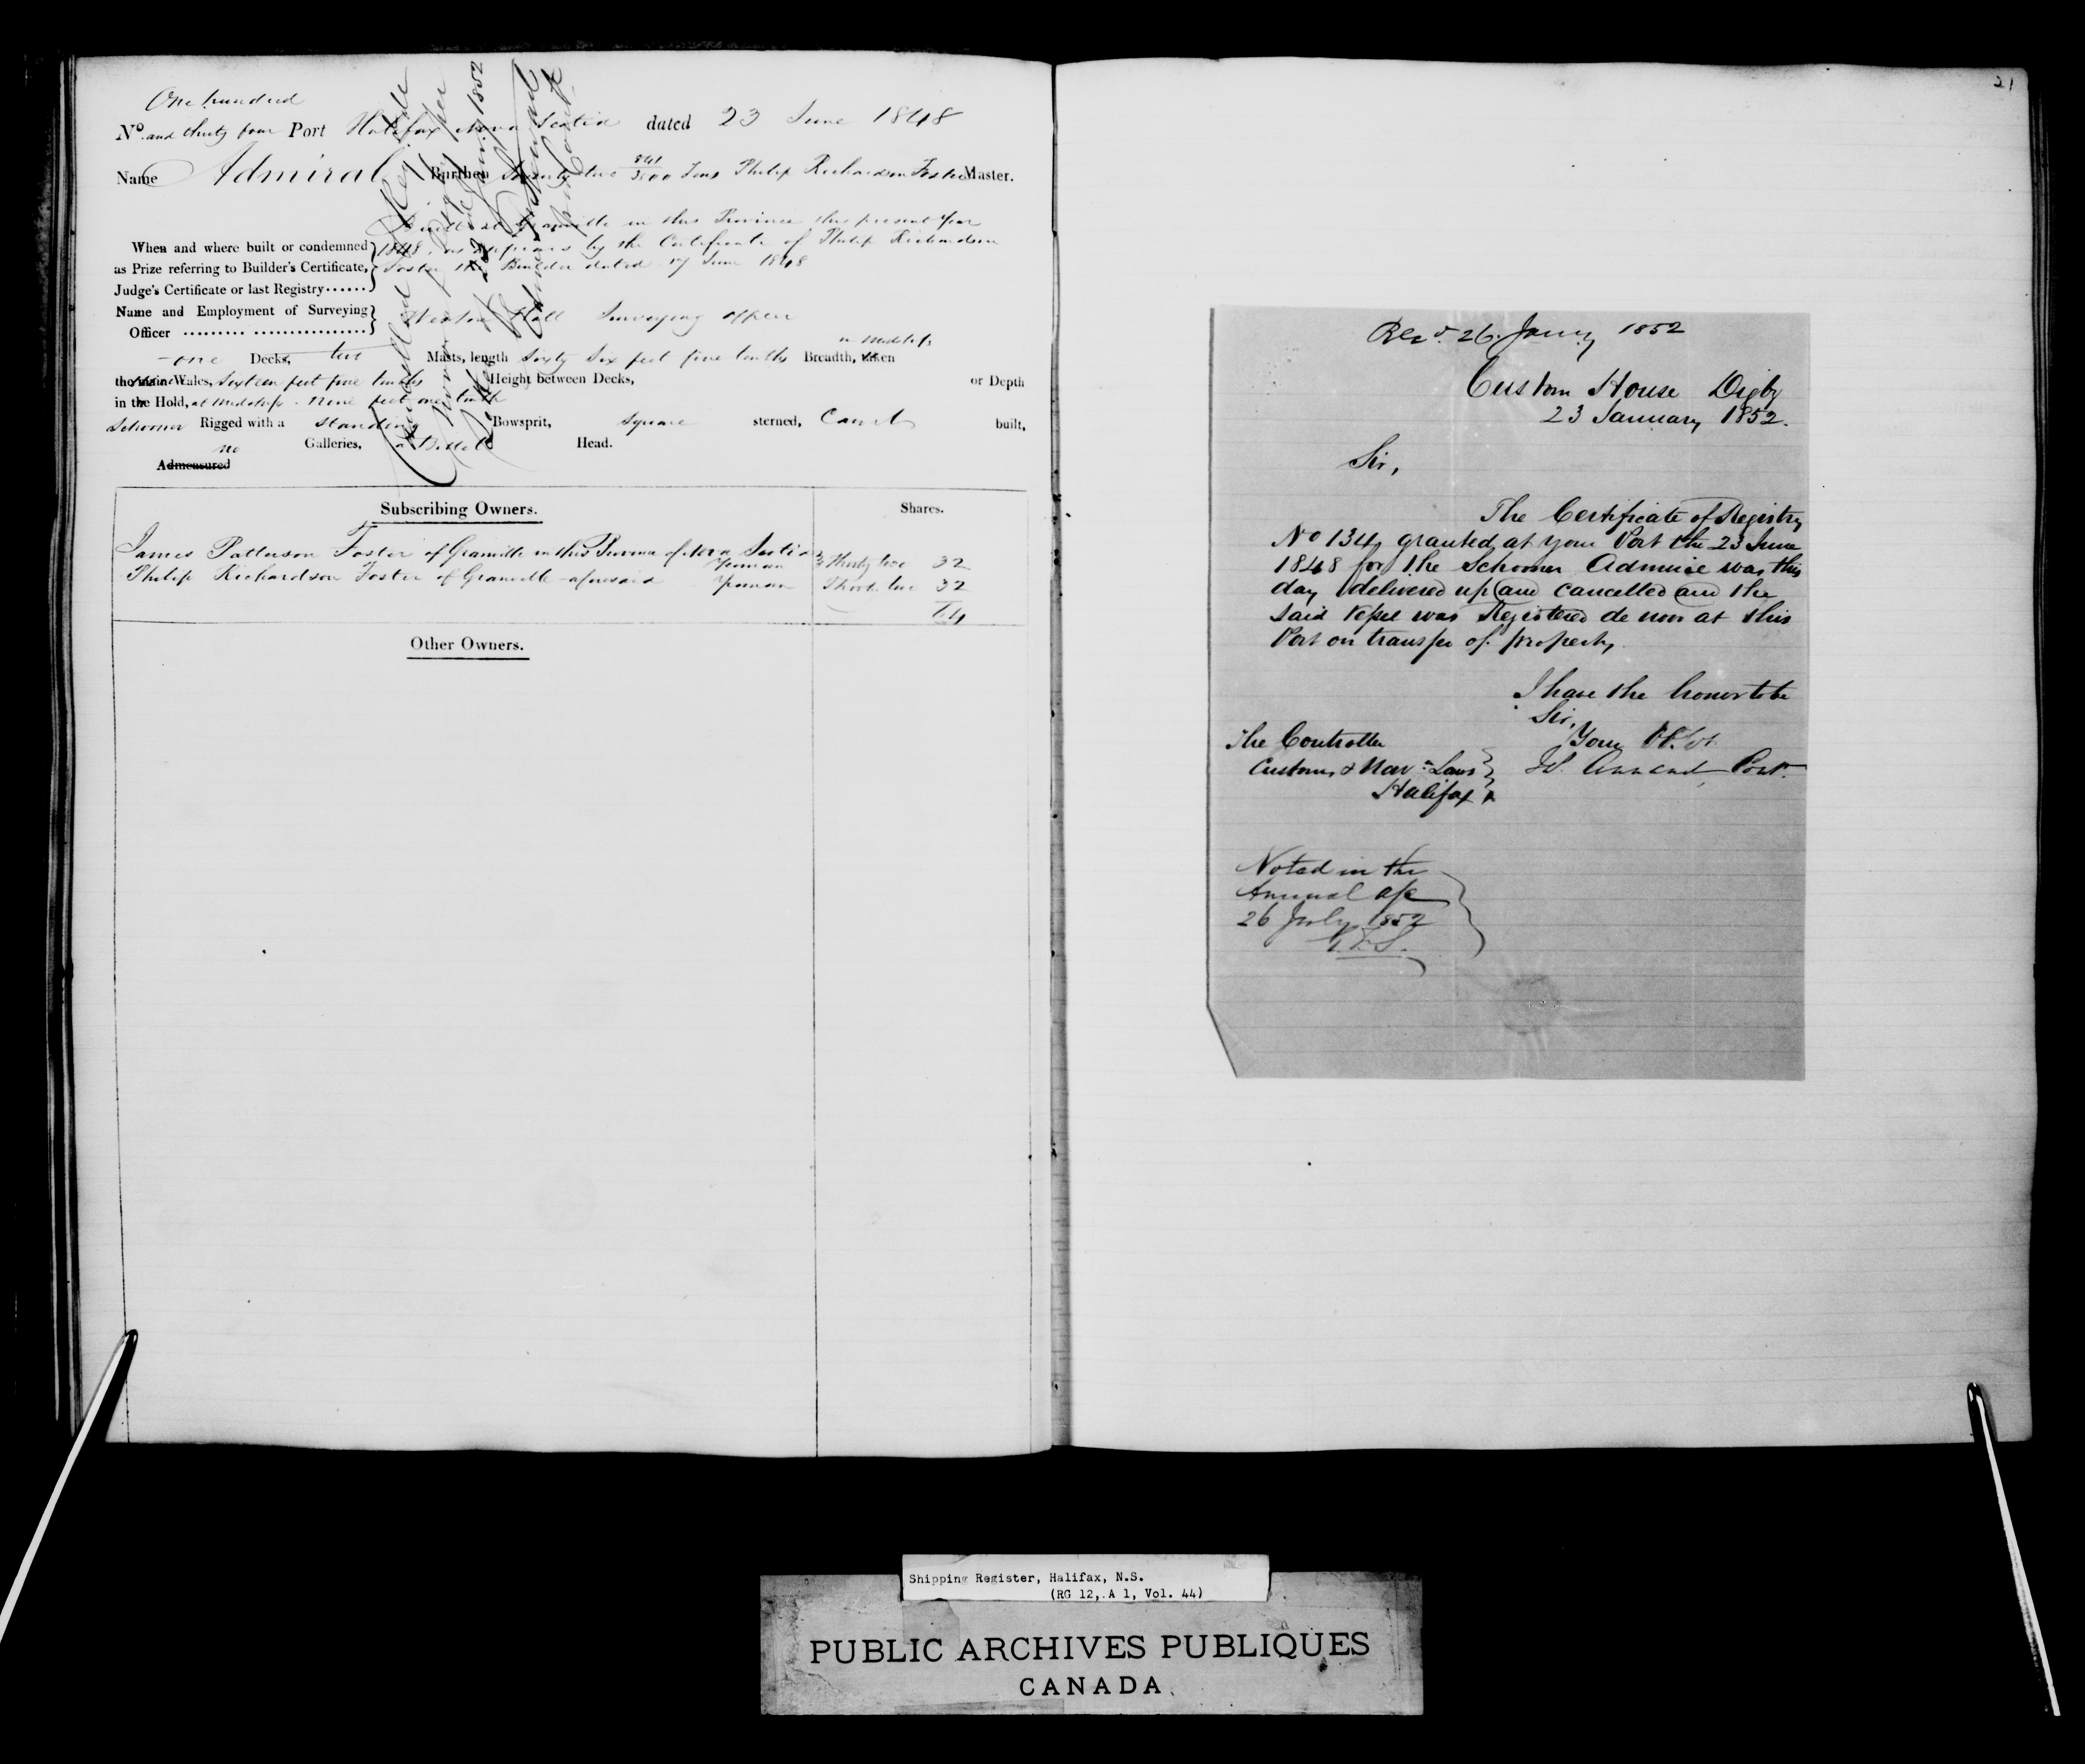 One hundred
No. and thirty four Port Halifax Nova Scotia dated 23 June 1848
Name Admiral Burthen Seventy two 841/3500 Tons Philip Richardson Foster Master.
Built at Granville in this Province this present Year
When and where built or condemned 1848, as appears by the Certificate of Philip Richardson
as Prize referring to Builder's Certificate, Foster the Builder dated 17 June 1848
Judge's Certificate or last Registry
Name and Employment of Surveying
Officer Hall Surveying Officer
in Midships
one Decks, two Masts, length Sixty Six feet five tenths Breadth, taken
the main Wales, Sixteen feet five tenths Height between Decks, or Depth
in the Hold, at Midships - Nine feet one tenth
Schooner Rigged with a Standing Bowsprit, Square sterned, Carvel built,
no Galleries, a Billet Head.
Admeasured
Cancelled
23 Jany 1852
Subscribing Owners. Shares.
James Patterson Foster of Granville in this Province of Nova Scotia
Yeoman Thirty two 32
Philip Richardson Foster of Granville aforesaid Yeoman Thirty two 32
64
Other Owners.
21
Recd. 26 Jany 1852
Custom House Digby
23 January 1852.
Sir,
The Certificate of Registry
No 134 granted at your Port the 23 June
1848 for the Schooner Admiral was this
day delivered up and cancelled and the
said Vessel was Registered de novo at this
Port on transfer of property.
I have the honor to be
Sir,
The Controller Your
Customs & Navn. Laws W. Annand Cont.
Halifax
Noted in the
Annual a/c
26 July 1852
Shipping Register, Halifax, N.S.
(RG 12, A 1, Vol. 44)
PUBLIC ARCHIVES PUBLIQUES
CANADA